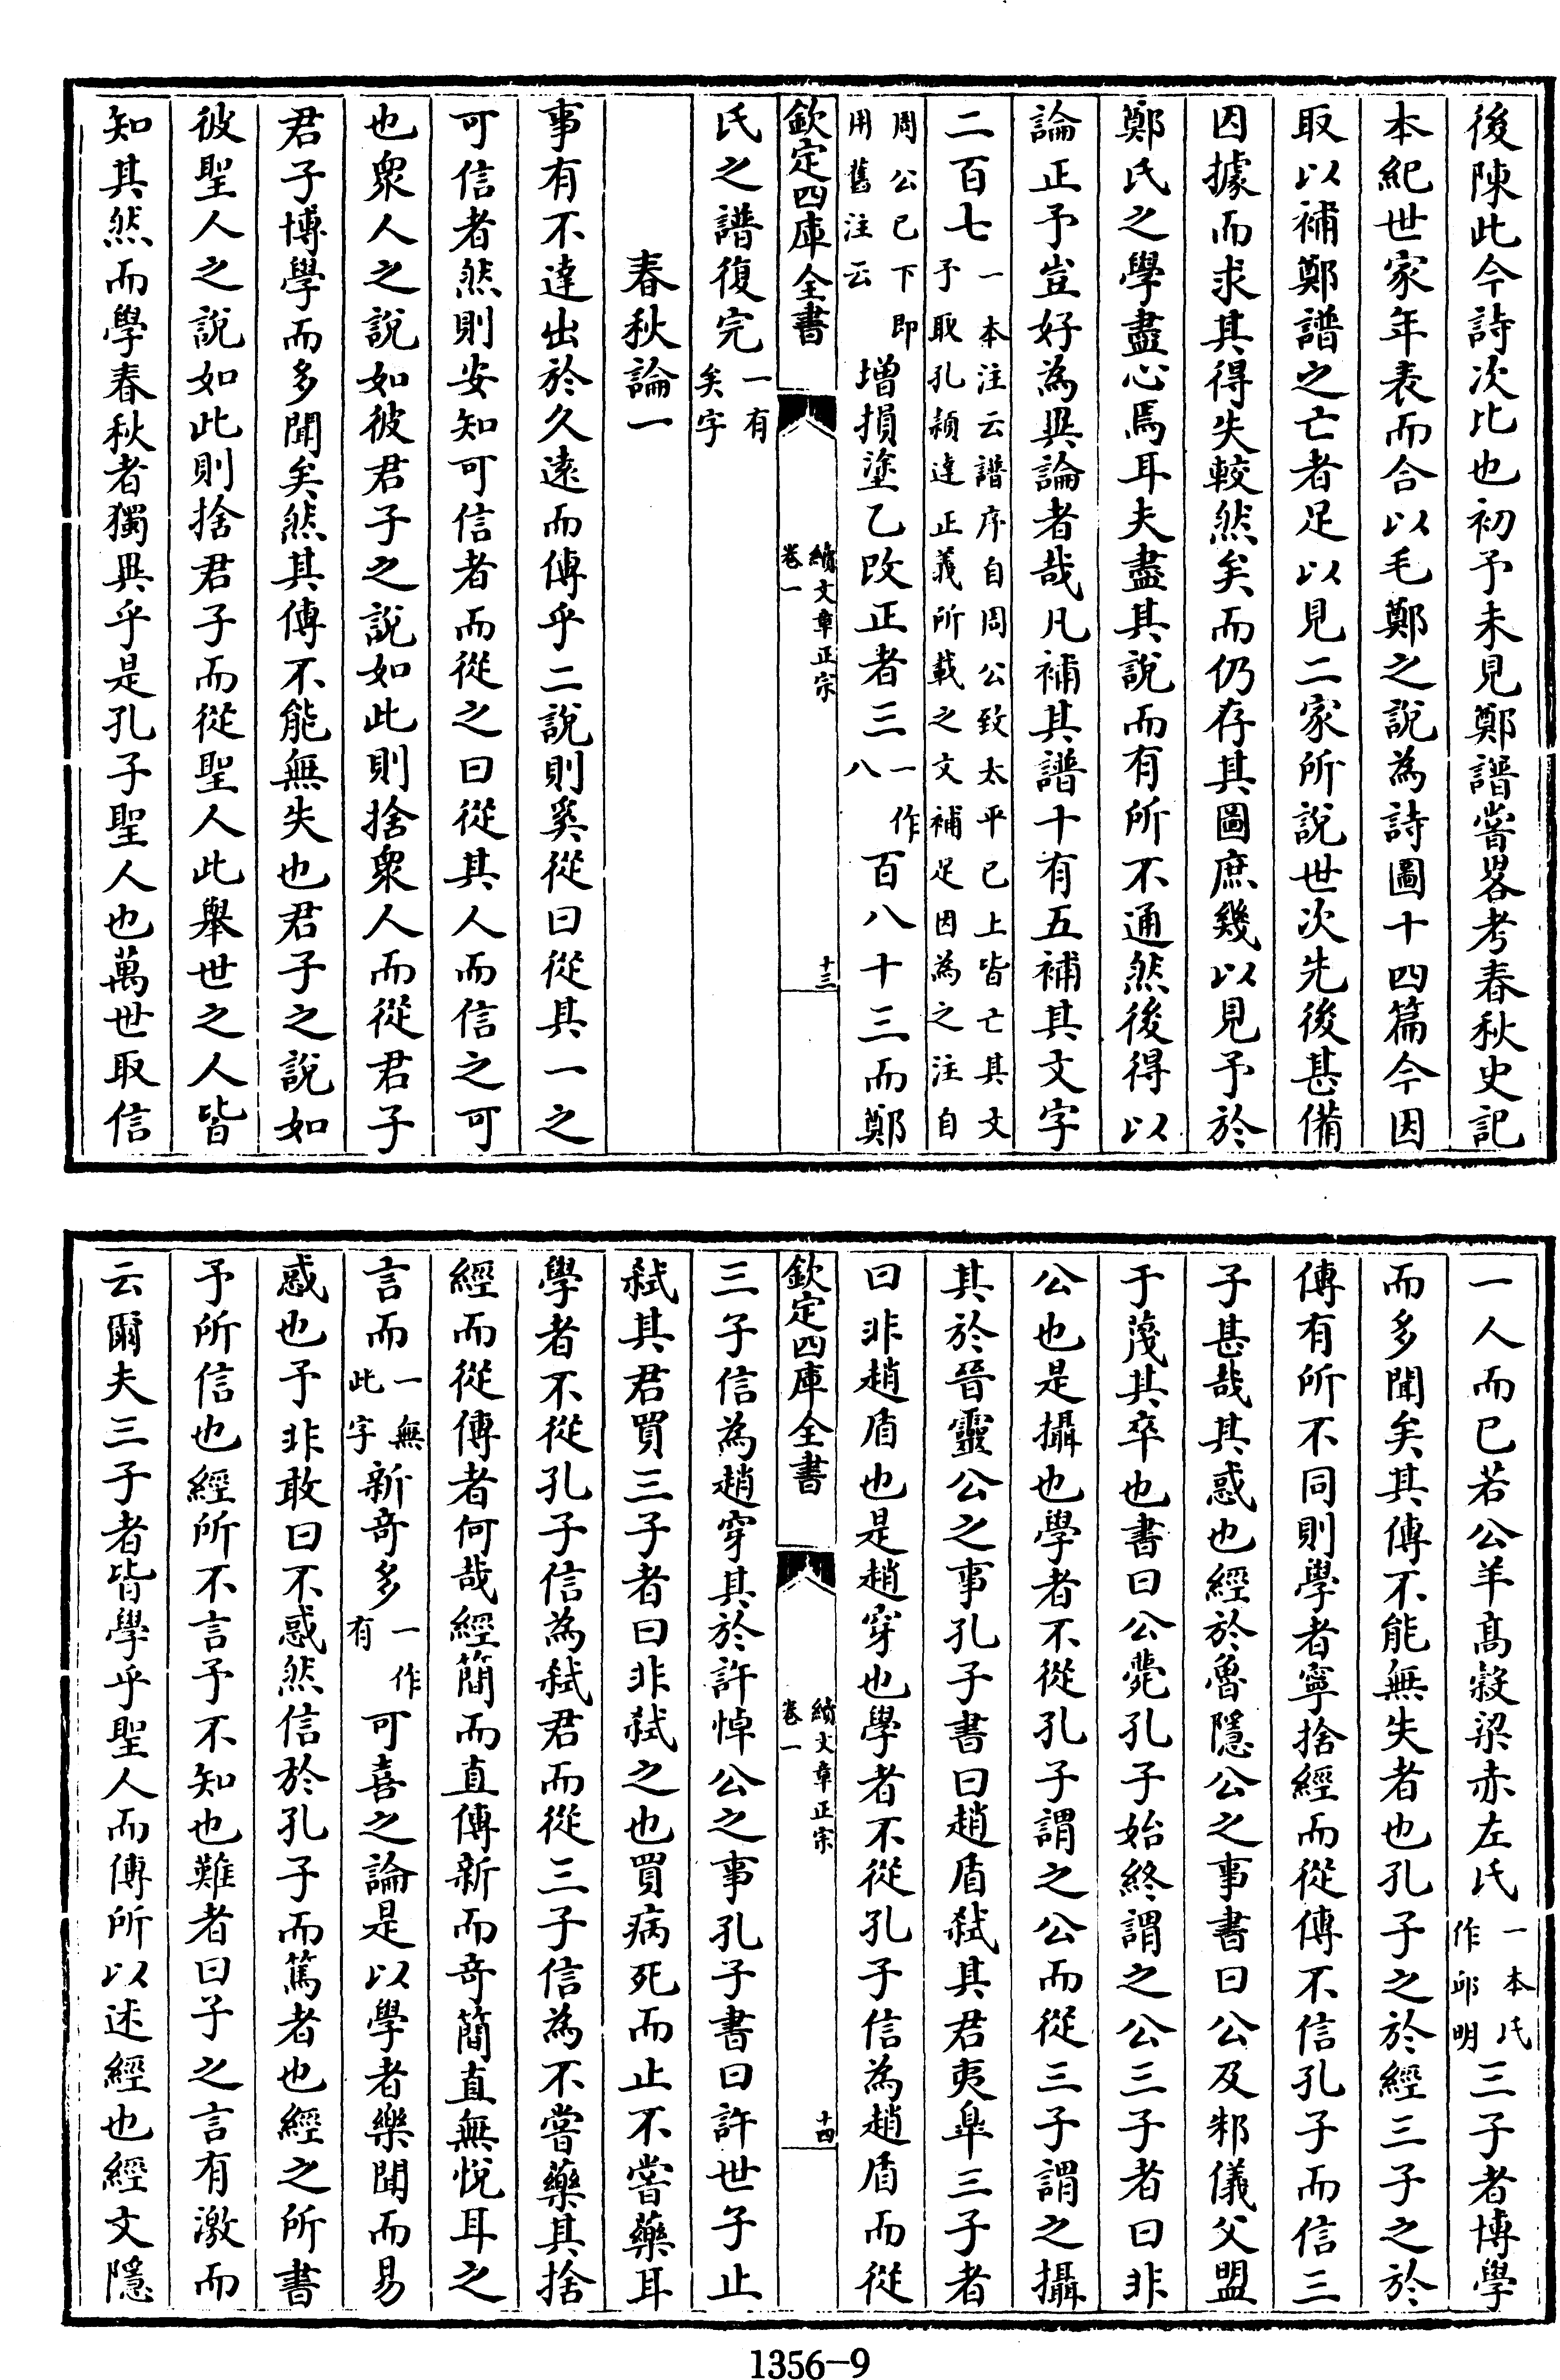 後陳此今詩次比也初予未見鄭譜嘗畧考春秋史記
本紀世家年表而合以毛鄭之說為詩圖十四篇今因
取以補鄭譜之亡者足以見二家所說世次先後甚備
因據而求其得失較然矣而仍存其圖庶幾以見予於
鄭氏之學盡心焉耳夫盡其說而有所不通然後得以
論正予豈好為異論者哉凡補其譜十有五補其文字
二百七一本注云譜序自周公致太平已上皆亡其文予取孔穎達正義所載之文補足因為之注自
周公已下即用舊注云增損塗乙改正者三一作八百八十三而鄭
欽定四庫全書 續文章正宗 卷一 十三
氏之譜復完一有矣字
春秋論一
事有不達出於久遠而傳乎二說則奚從曰從其一之
可信者然則安知可信者而從之曰從其人而信之可
也衆人之說如彼君子之說如此則捨衆人而從君子
君子博學而多聞矣然其傳不能無失也君子之說如
彼聖人之說如此則捨君子而從聖人此舉世之人皆
知其然而學春秋者獨異乎是孔子聖人也萬世取信
一人而已若公羊髙穀梁赤左氏一本氏作邱明三子者博學
而多聞矣其傳不能無失者也孔子之於經三子之於
傳有所不同則學者寧捨經而從傳不信孔子而信三
子甚哉其惑也經於魯隱公之事書曰公及邾儀父盟
于蔑其卒也書曰公薨孔子始終謂之公三子者曰非
公也是攝也學者不從孔子謂之公而從三子謂之攝
其於晉靈公之事孔子書曰趙盾弑其君夷臯三子者
曰非趙盾也是趙穿也學者不從孔子信為趙盾而從
欽定四庫全書 續文章正宗 卷一 十四
三子信為趙穿其於許悼公之事孔子書曰許世子止
弑其君買三子者曰非弑之也買病死而止不嘗藥耳
學者不從孔子信為弑君而從三子信為不嘗藥其捨
經而從傳者何哉經簡而直傳新而竒簡直無悅耳之
言而一無此字新竒多一作有可喜之論是以學者樂聞而易
惑也予非敢曰不惑然信於孔子而篤者也經之所書
予所信也經所不言予不知也難者曰子之言有激而
云爾夫三子者皆學乎聖人而傳所以述經也經文隱
1356-9